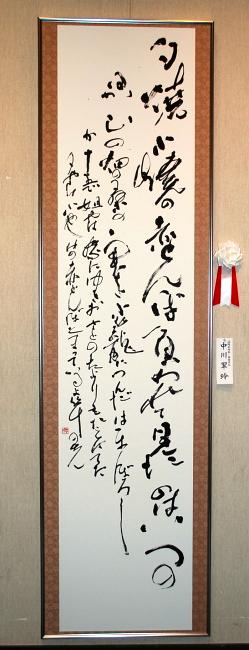 夕焼小焼の赤とんぼ負われて見たのはいつの
日か山の畑の桑の実を小籠に摘んだはまぼろし
か十五で姐やは嫁にゆきお里のたよりもたえはてた
夕やけ小やけの赤とんぼとまっているよ竿の先
中川翠玲